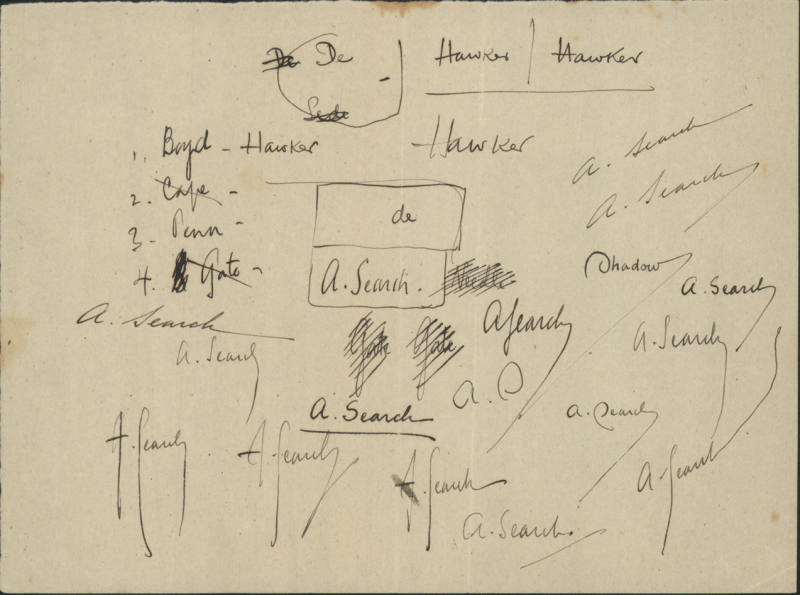 De De Hawker | Hawker
1. Boyd - Hawker Hawker
2. Cape -
3 - Penn -
4. Gate -
de
A. Search.
A. Search
A. Search
Shadow
A. Search
A. Search
A. Search
A. Search
A Search
A. Search
Gate Gate
A. S
A. Search
A. Search
A. Search
A. Search
A. Search
A. Search
A. Search.